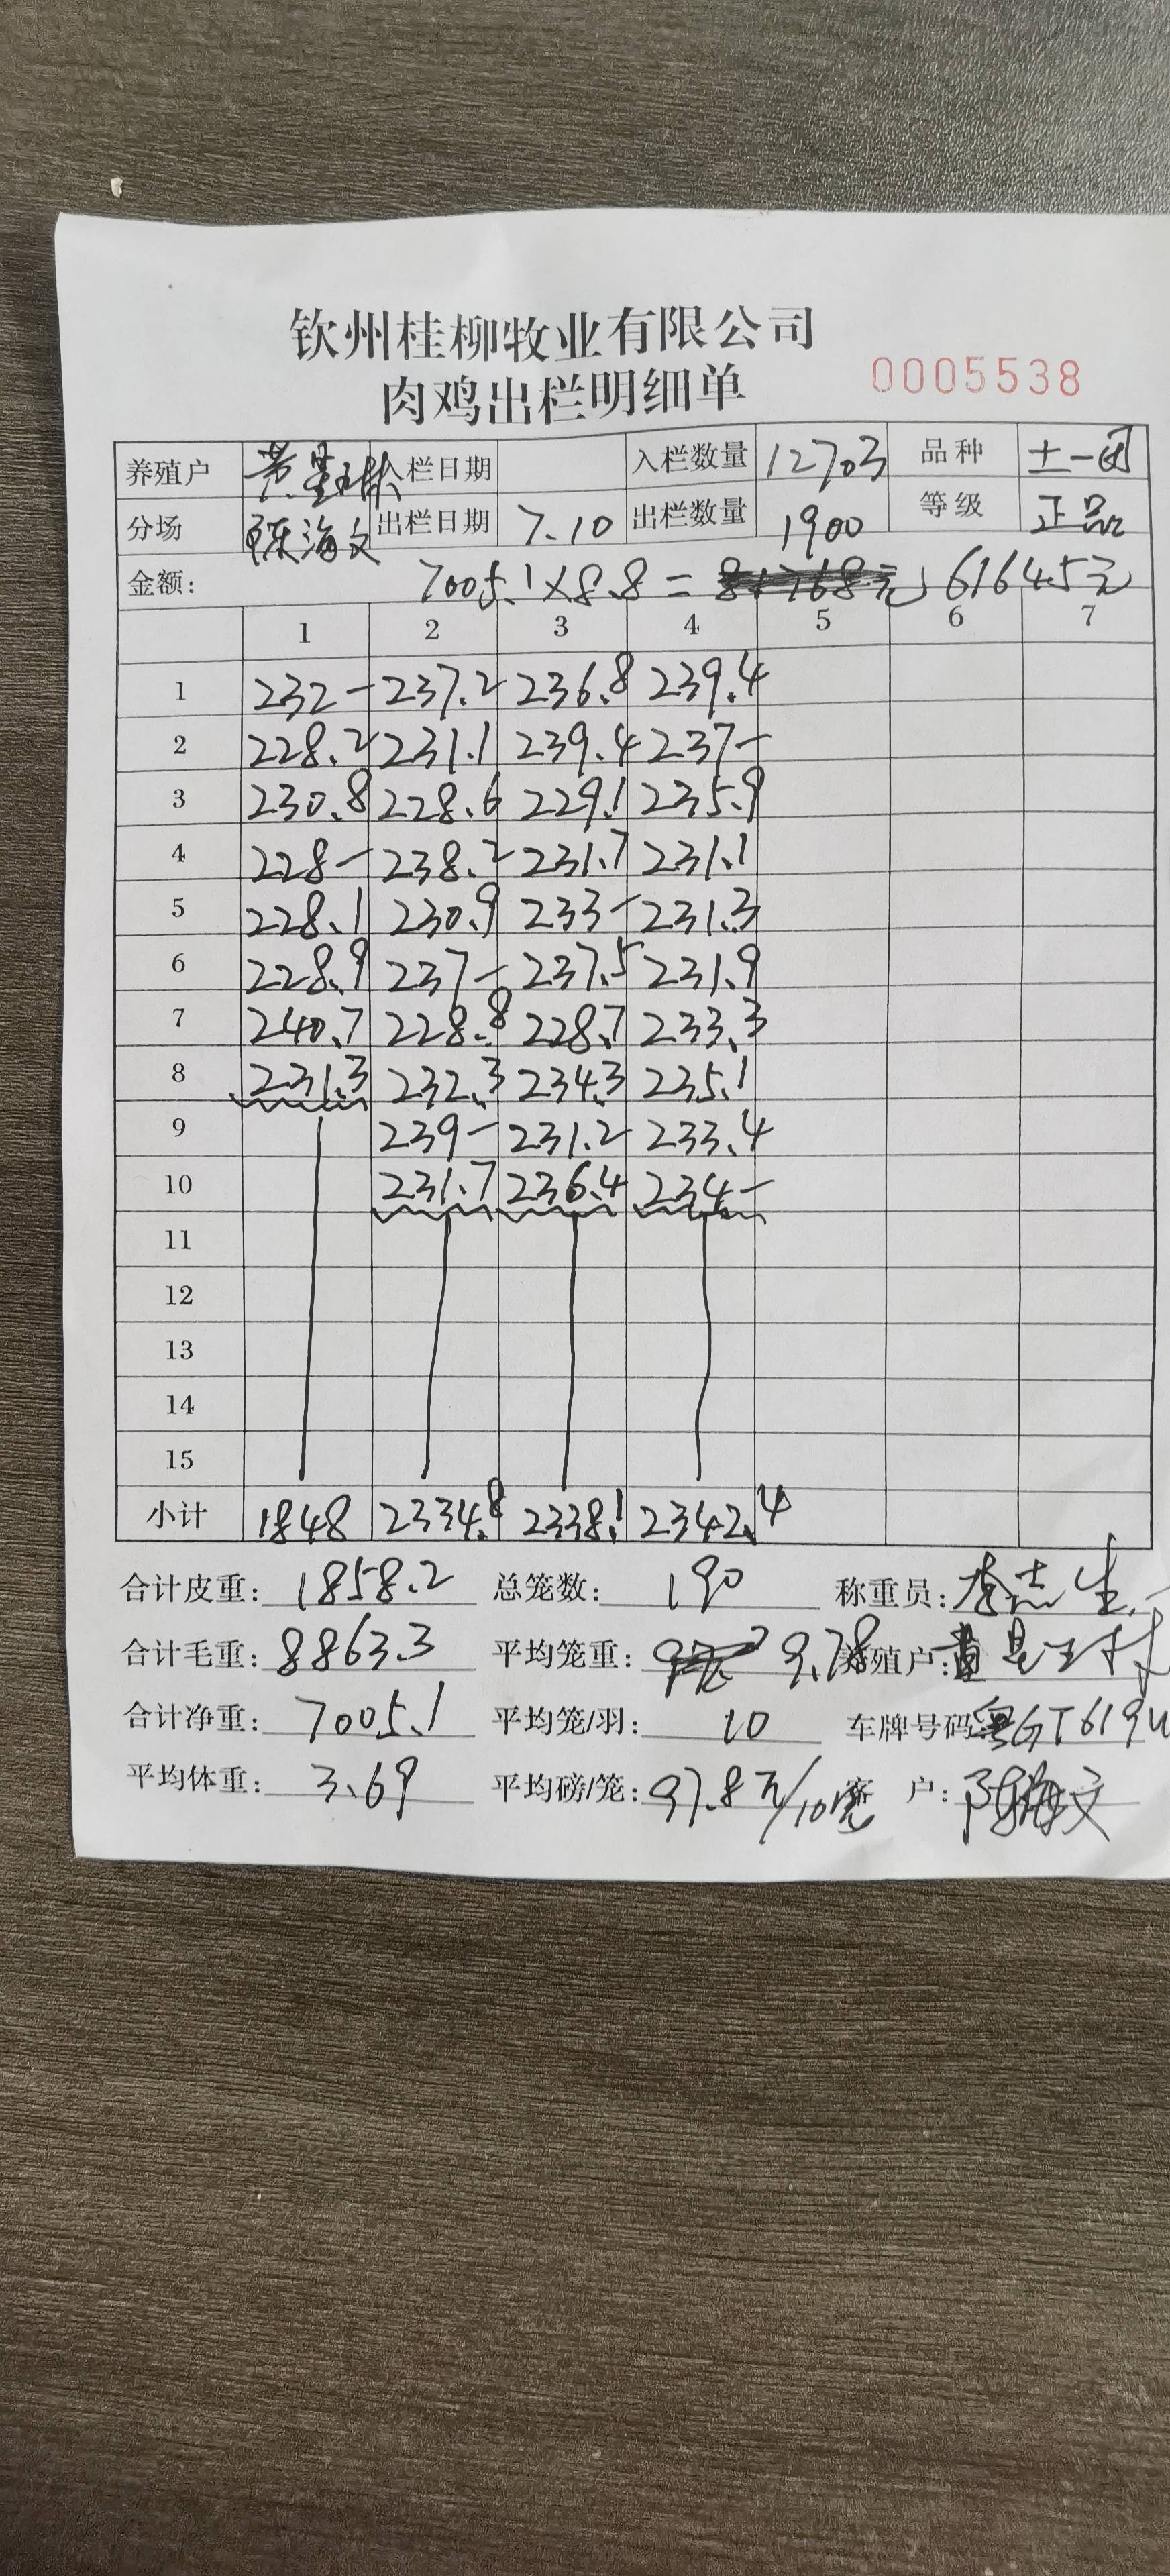 钦州桂柳牧业有限公司
肉鸡出栏明细单 0005538
养殖户 入栏日期 入栏数量 12703 品种 土一团
分场 陈海文 出栏日期 7.10 出栏数量 1900 等级 正品
金额: 7005.1×8.8= 61645元
1 2 3 4 5 6 7
1 232- 237.2 236.8 239.4
2 228.2 231.1 239.4 237-
3 230.8 228.6 229.1 235.9
4 228- 238.2 231.7 231.1
5 228.1 230.9 233- 231.3
6 228.9 237- 237.5 231.9
7 240.7 228.8 228.7 233.3
8 231.3 232.3 234.3 235.1
9 239- 231.2 233.4
10 231.7 236.4 234-
11
12
13
14
15
小计 1848 2334.8 2338.1 2342.4
合计皮重: 1858.2 总笼数: 190 称重员: 李志生
合计毛重: 8863.3 平均笼重: 9.78 养殖户:
合计净重: 7005.1 平均笼/羽: 10 车牌号码: 粤GT619U
平均体重: 3.69 平均磅/笼: 97.8 客 户: 陈海文